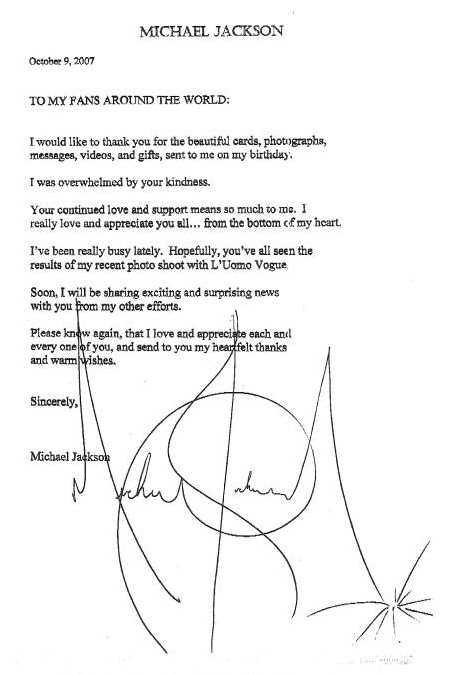 MICHAEL JACKSON
October 9, 2007
TO MY FANS AROUND THE WORLD:
I would like to thank you for the beautiful cards, photographs,
messages, videos, and gifts, sent to me on my birthday.
I was overwhelmed by your kindness.
Your continued love and support means so much to me. I
really love and appreciate you all... from the bottom of my heart.
I've been really busy lately. Hopefully, you've all seen the
results of my recent photo shoot with L'Uomo Vogue.
Soon, I will be sharing exciting and surprising news
with you from my other efforts.
Please know again, that I love and appreciate each and
every one of you, and send to you my heartfelt thanks
and warm wishes.
Sincerely,
Michael Jackson